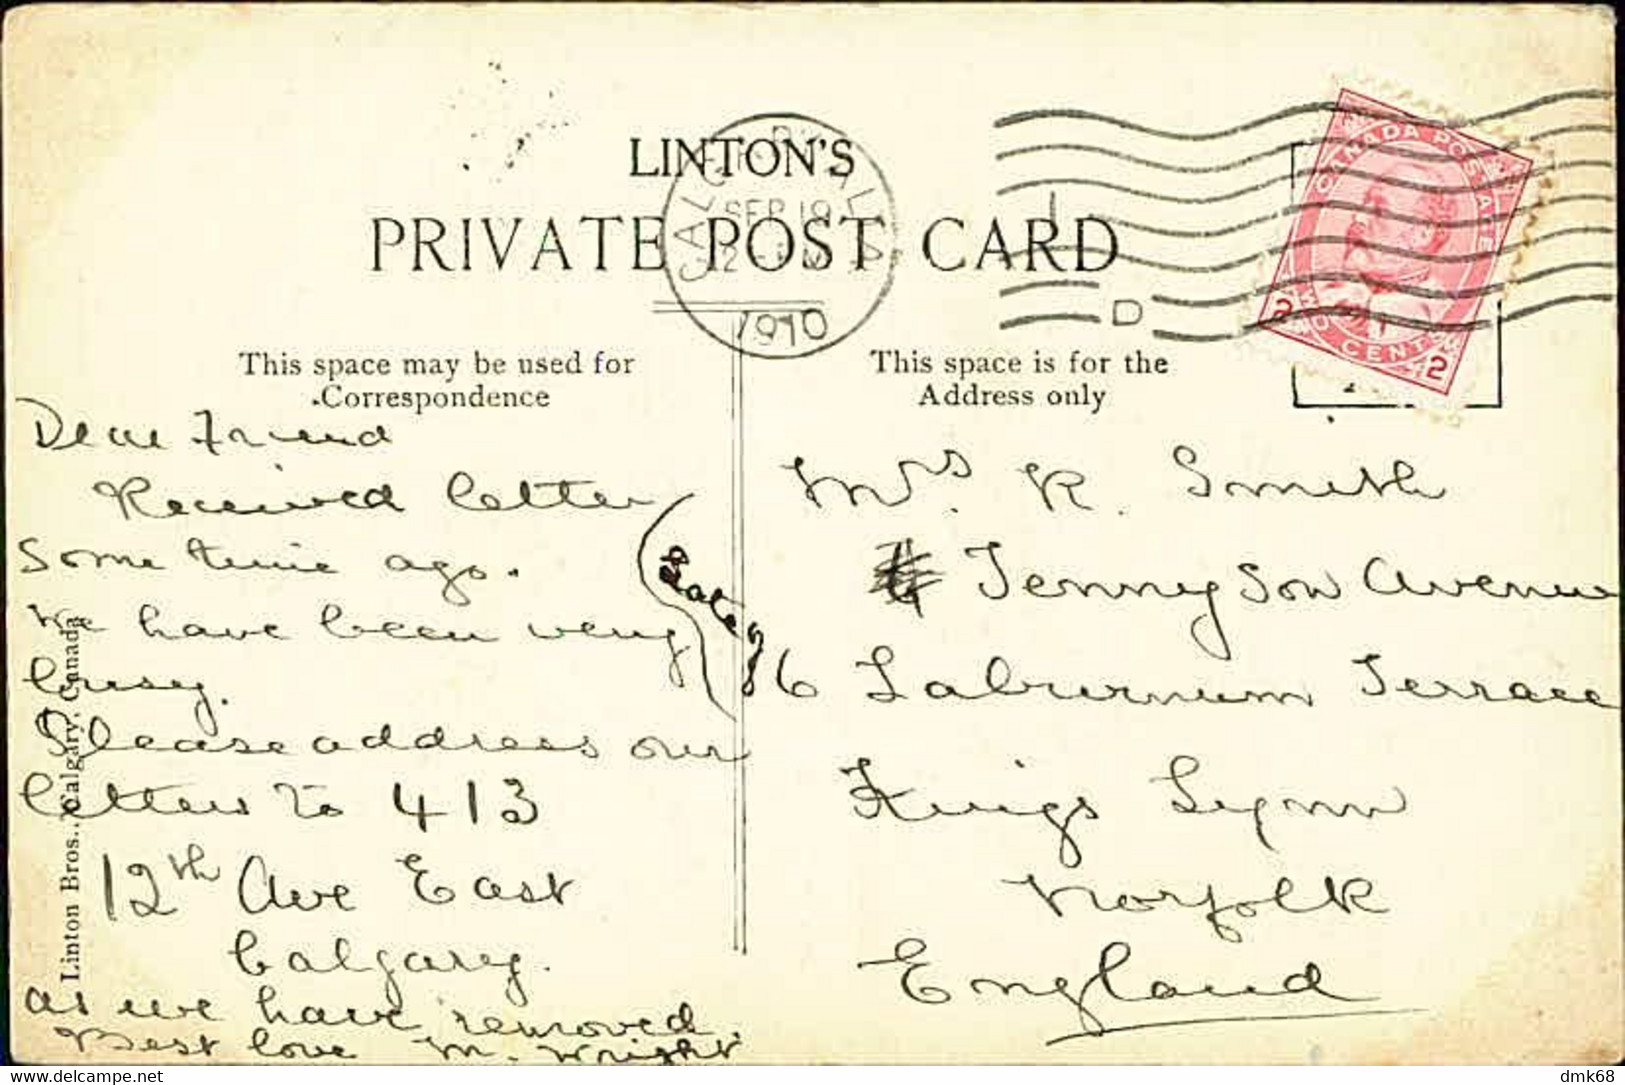 LINTON'S
PRIVATE POST CARD
CALGARY ALTA
SEP 19
1910
D
CANADA POSTAGE
TWO CENTS
2 2
This space may be used for
Correspondence
This space is for the
Address only
Dear Friend
Received letter
some time ago.
We have been very
busy.
Please address our
letters to 413
12th Ave East
Calgary.
as we have removed.
Best love M. Wright
Mrs. R. Smith
Tennyson Avenue
6 Laburnum Terrace
Kings Lynn
Norfolk
England
Linton Bros., Calgary, Canada
www.delcampe.net
dmk68